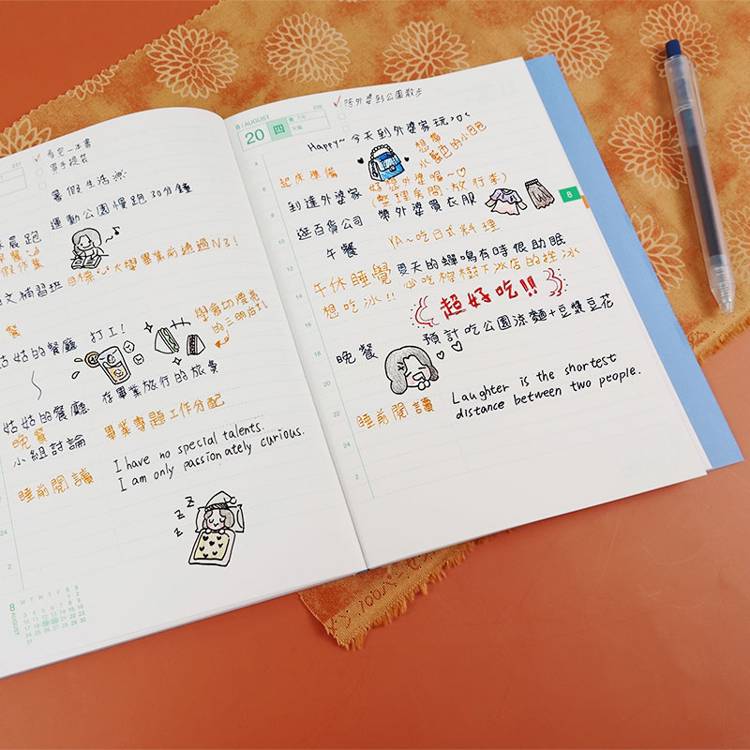 看完一本書
暑假生活游
運動公園慢跑30分鐘
晨跑
目標:大學畢業前通過N3!
文補習班
餐
姑姑的餐廳 打工!
學會切漂亮
的三明治!!
在畢業旅行的旅費
姑姑的餐廳
晚餐
畢業專題工作分配
小組討論
睡前閱讀
I have no special talents.
I am only passionately curious.
z z z
24
2
8
AUGUST
M T W T F S S
8 AUGUST
20 四
陪外婆到公園散步
Happy~ 今天到外婆家玩
想傷
水藍色的小包包
起床準備
好想外婆喔~♡
到達外婆家
(整理房間.放行李)
8
逛百貨公司
帶外婆買衣服
午餐
YA~吃日式料理
午休睡覺
夏天的蟬鳴有時很助眠
想吃冰!!
心吃樹下冰店的挫冰
超好吃!!
預計吃公園涼麵+豆漿豆花
晚餐
睡前閱讀
Laughter is the shortest
distance between two people.
4
6
8
10
12
14
16
18
20
22
24
2